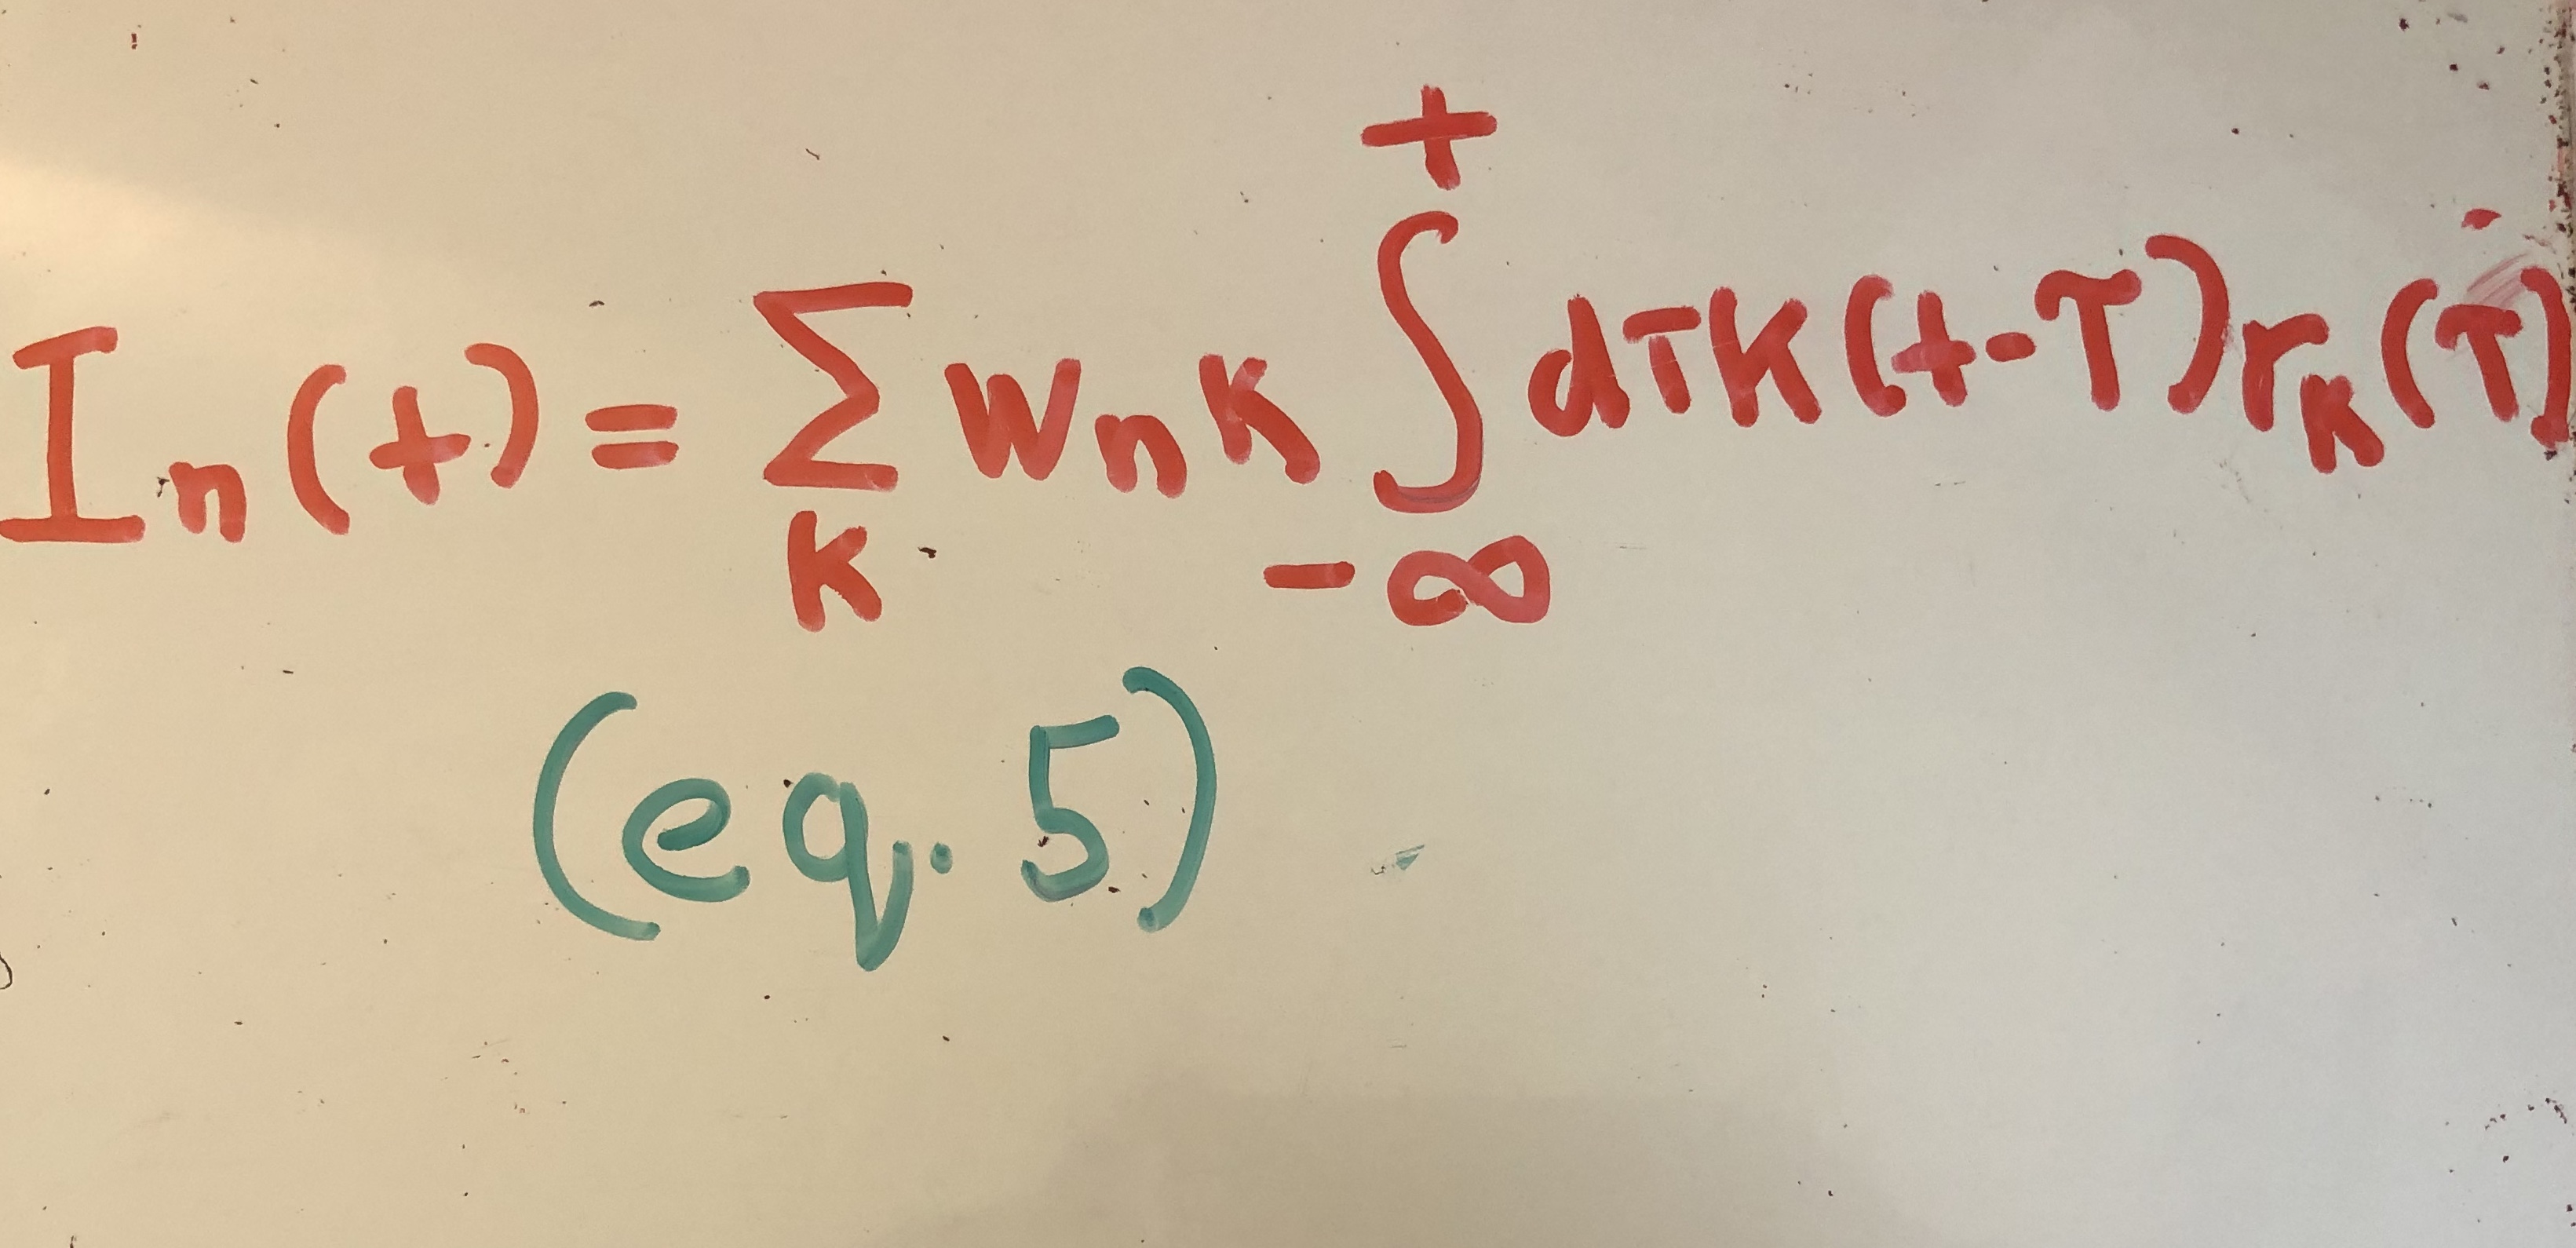 I_n(t) = ∑_k w_nk ∫_{-∞}^{t} dτ K(t-τ) r_k(τ)
(eq. 5)